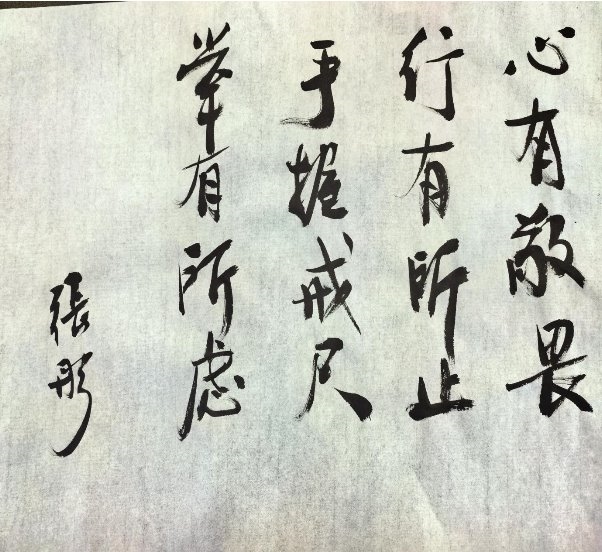 心有敬畏
行有所止
手握戒尺
举有所虑
張彤